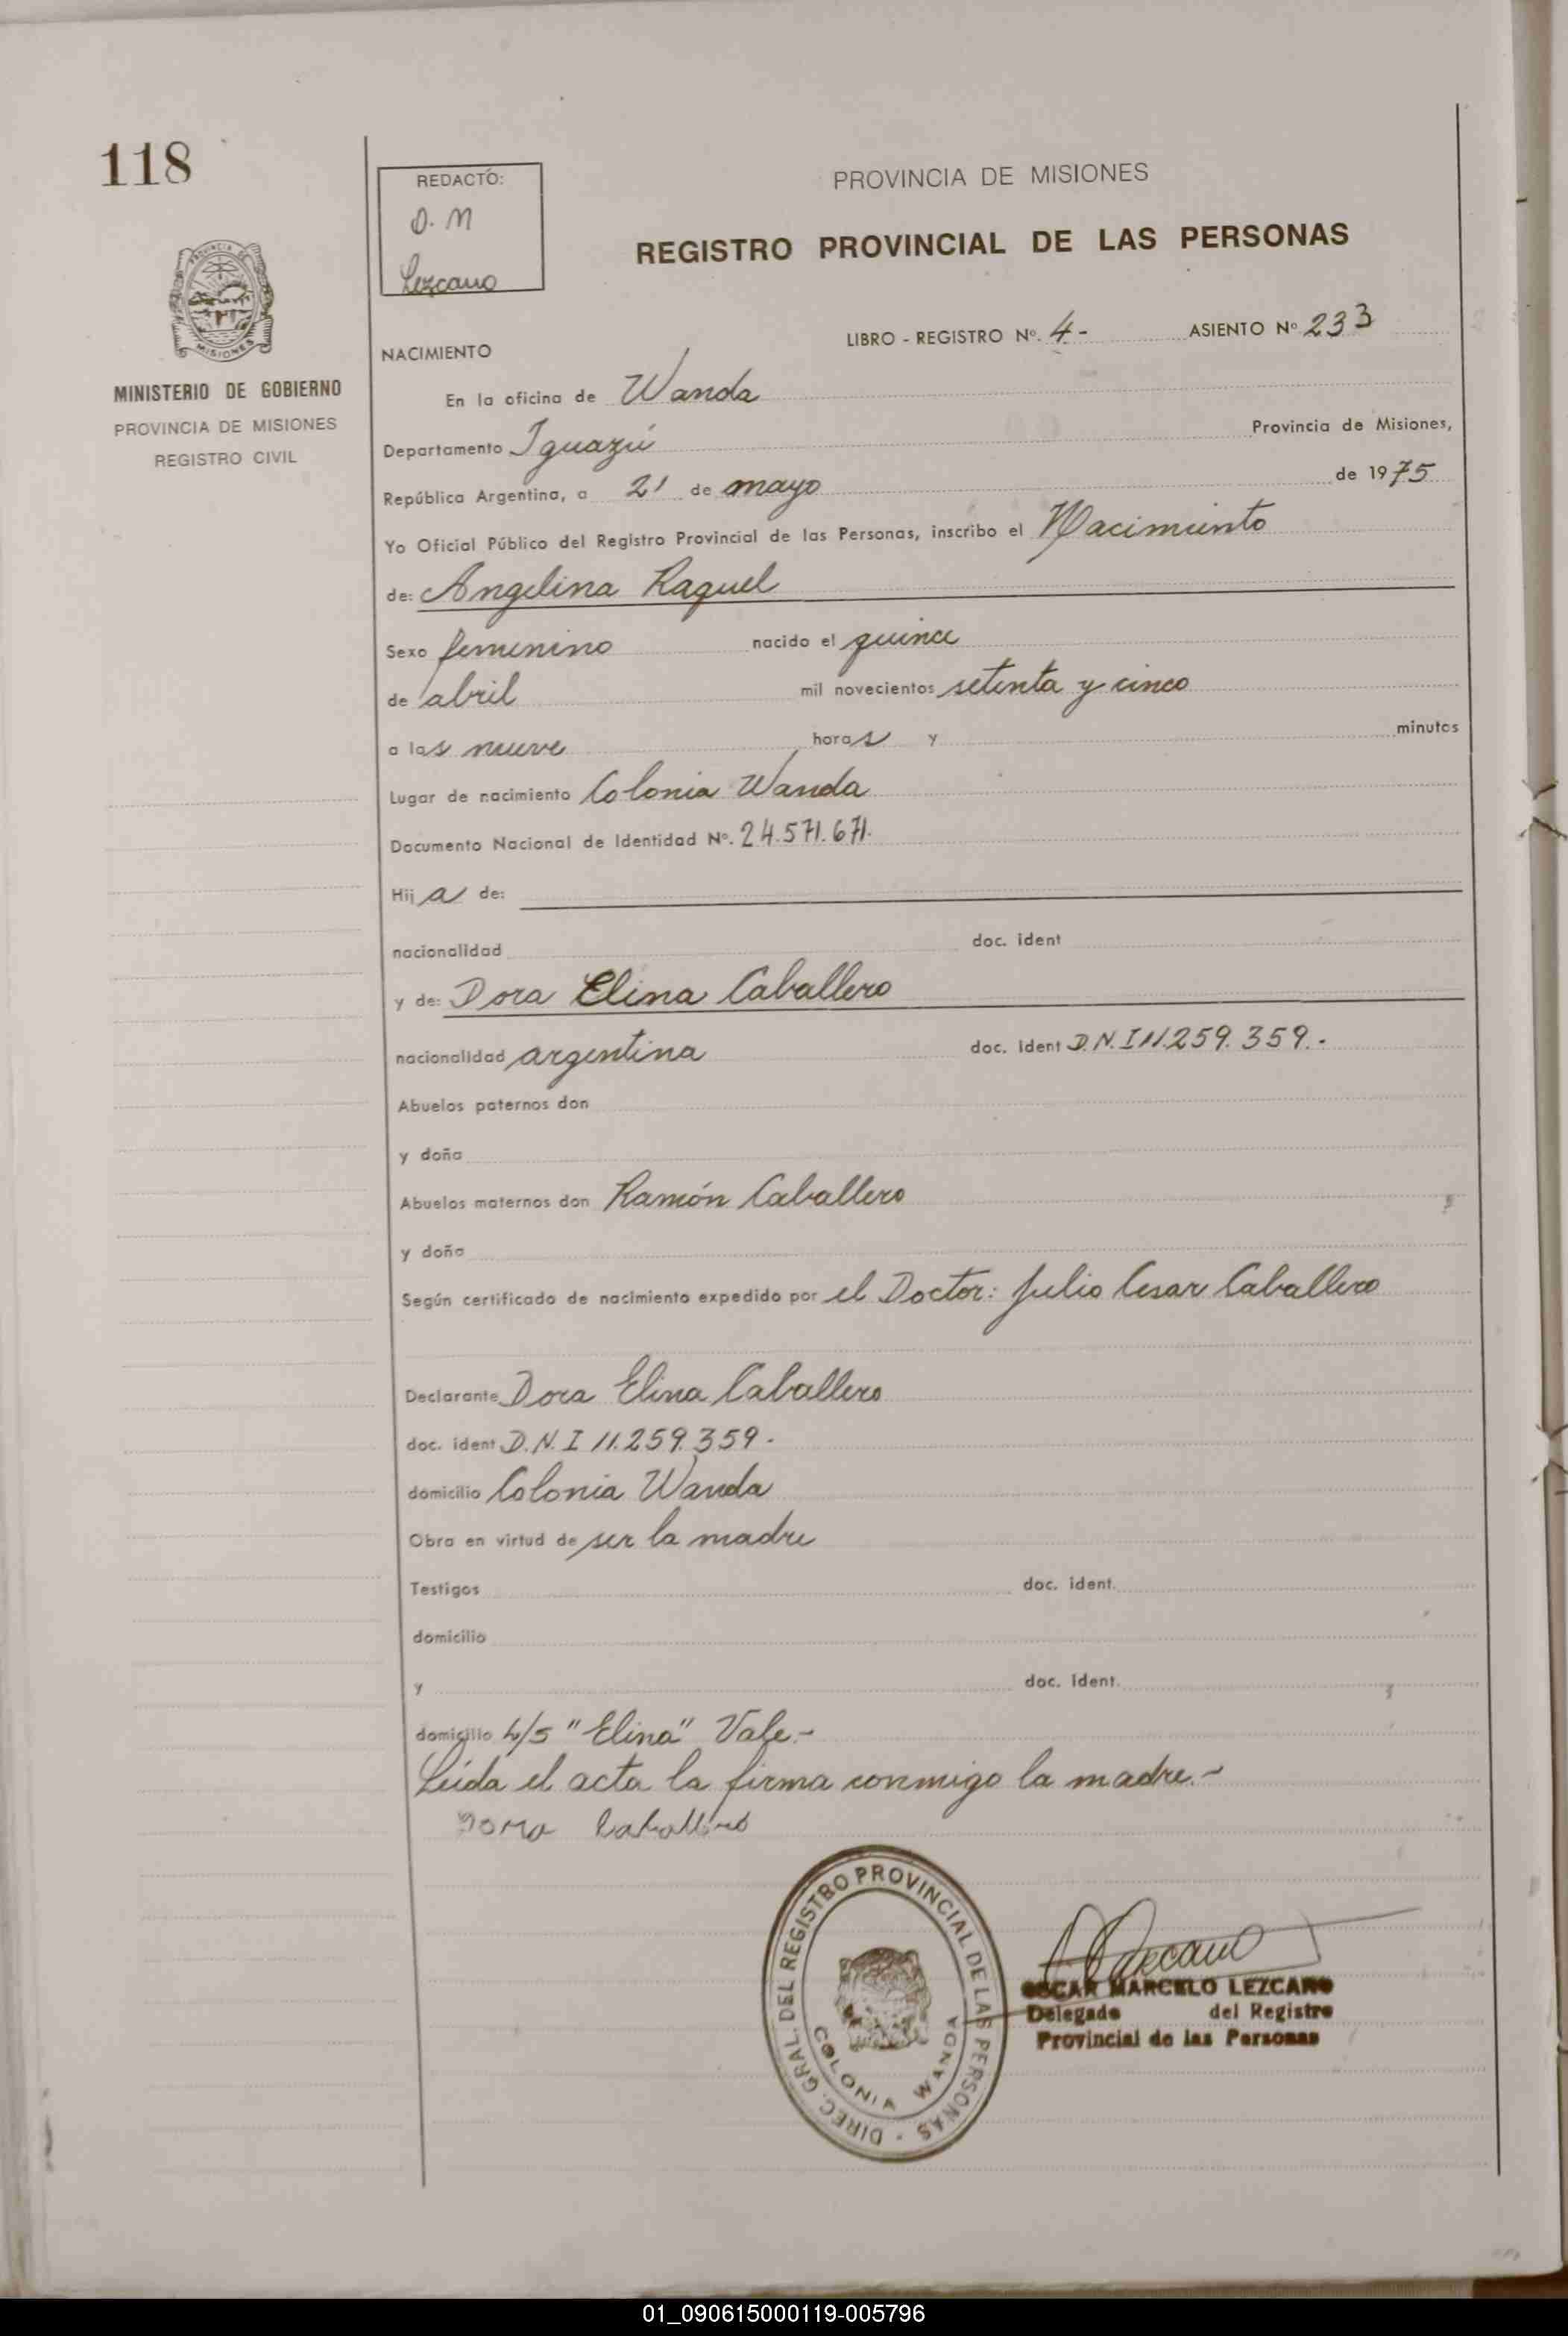 118
REDACTÓ:
O. M
Lezcano
PROVINCIA DE MISIONES
REGISTRO PROVINCIAL DE LAS PERSONAS
PROVINCIA DE
MISIONES
MINISTERIO DE GOBIERNO
PROVINCIA DE MISIONES
REGISTRO CIVIL
LIBRO - REGISTRO Nº. 4- ASIENTO Nº 233
NACIMIENTO
En la oficina de Wanda
Departamento Iguazú Provincia de Misiones,
República Argentina, a 21 de mayo de 1975
Yo Oficial Público del Registro Provincial de las Personas, inscribo el Nacimiento
de: Angelina Raquel
Sexo femenino nacido el quince
de abril mil novecientos setenta y cinco
a las nueve horas y minutos
Lugar de nacimiento Colonia Wanda
Documento Nacional de Identidad Nº. 24.571.671.
Hija de:
nacionalidad doc. ident
y de: Dora Elina Caballero
nacionalidad argentina doc. ident D.N.I 11.259.359.-
Abuelos paternos don
y doña
Abuelos maternos don Ramón Caballero
y doña
Según certificado de nacimiento expedido por el Doctor: Julio Cesar Caballero
Declarante Dora Elina Caballero
doc. ident D.N.I 11.259.359.
domicilio Colonia Wanda
Obra en virtud de ser la madre
Testigos doc. ident.
domicilio
y doc. ident.
domicilio "Elina" Vale.-
Leida el acta la firma conmigo la madre.-
Dora Caballero
DIREC. GRAL. DEL REGISTRO PROVINCIAL DE LAS PERSONAS -
COLONIA WANDA
Lezcano
OSCAR MARCELO LEZCANO
Delegado del Registro
Provincial de las Personas
01_090615000119-005796